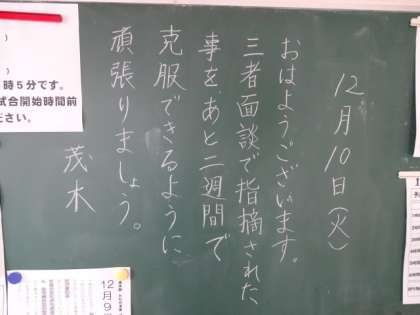 12月10日(火)
おはようございます。
三者面談で指摘された
事を、あと二週間で
克服できるように
頑張りましょう。
茂木
)
)
時5分です。
試合開始時間前
ださい。
12月9